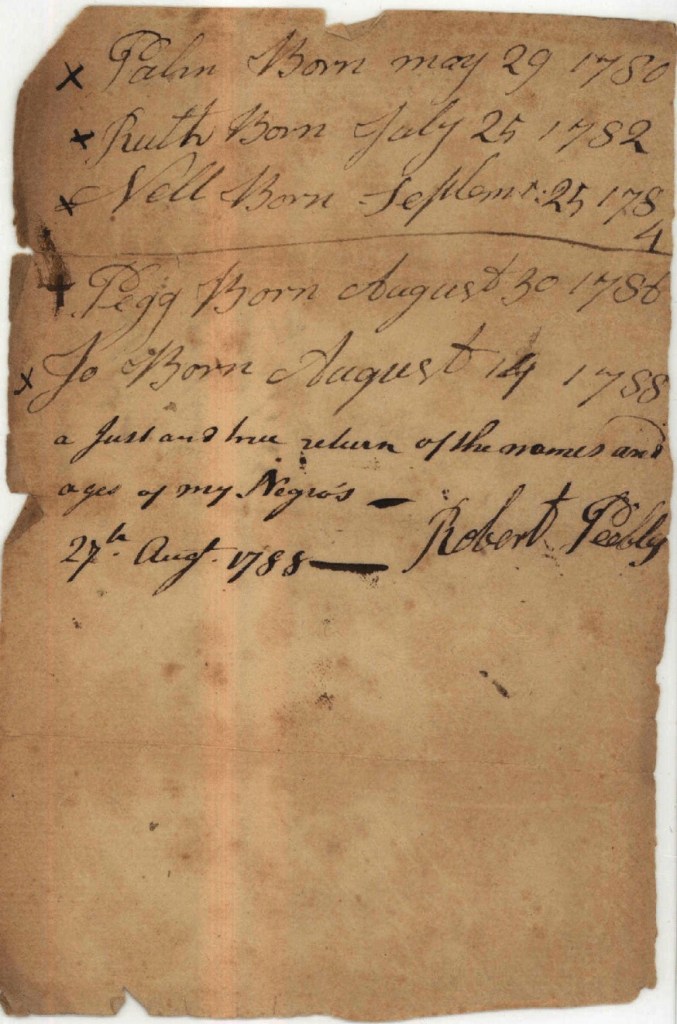 x Palm Born may 29 1780
x Ruth Born July 25 1782
x Nell Born Septemr: 25 178
4
x Pegg Born August 30 1786
x Jo Born August 14 1788
a Just and true return of the names and
ages of my Negro's —
27th. Augt. 1788 — Robert Peebly